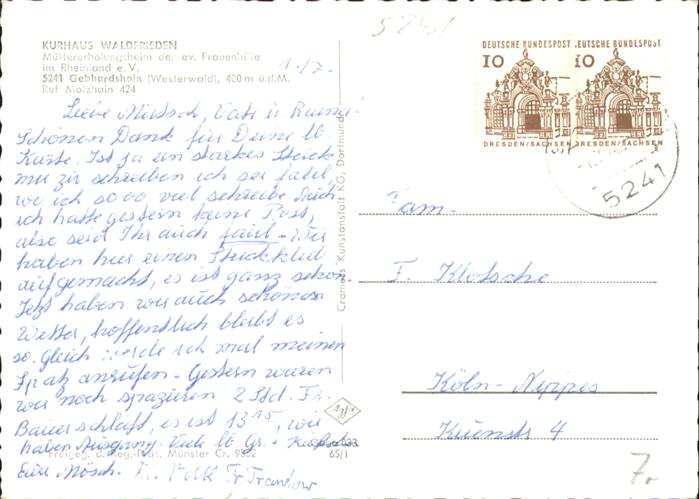 5241
KURHAUS WALDFRIEDEN
Müttererholungsheim der ev. Frauenhilfe
im Rheinland e. V.
5241 Gebhardshain (Westerwald), 400 m ü.d.M.
Ruf Malzhain 424
1./7.
Liebe Mutsch, Vati u. Raing
Schönen Dank für Deine lb.
Karte. Ist ja ein starkes Stück
mir zu schreiben ich sei faul
wo ich sooo viel schreibe. Auch
ich hatte gestern keine Post,
also seid Ihr auch faul - Wir
haben hier einen Strickklub
aufgemacht, es ist ganz schön.
Jetzt haben wir auch schönen
Wetter, hoffentlich bleibt es
so. gleich werde ich mal meinen
Spatz anrufen - Gestern waren
wir noch spazieren 2 Std. Fr.
Bauer schläft, es ist 13 15, wir
haben Ausgang. Viele lb Gr. +
Freigeg. d. Reg.-Präs. Münster Cr. 9382
65/1
Eure Mösch.
Cramers Kunstanstalt KG, Dortmund
DEUTSCHE BUNDESPOST
10
DRESDEN/SACHSEN
DEUTSCHE BUNDESPOST
10
DRESDEN/SACHSEN
5241
Fam.
F. Klotsche
Köln-Nippes
4
7.